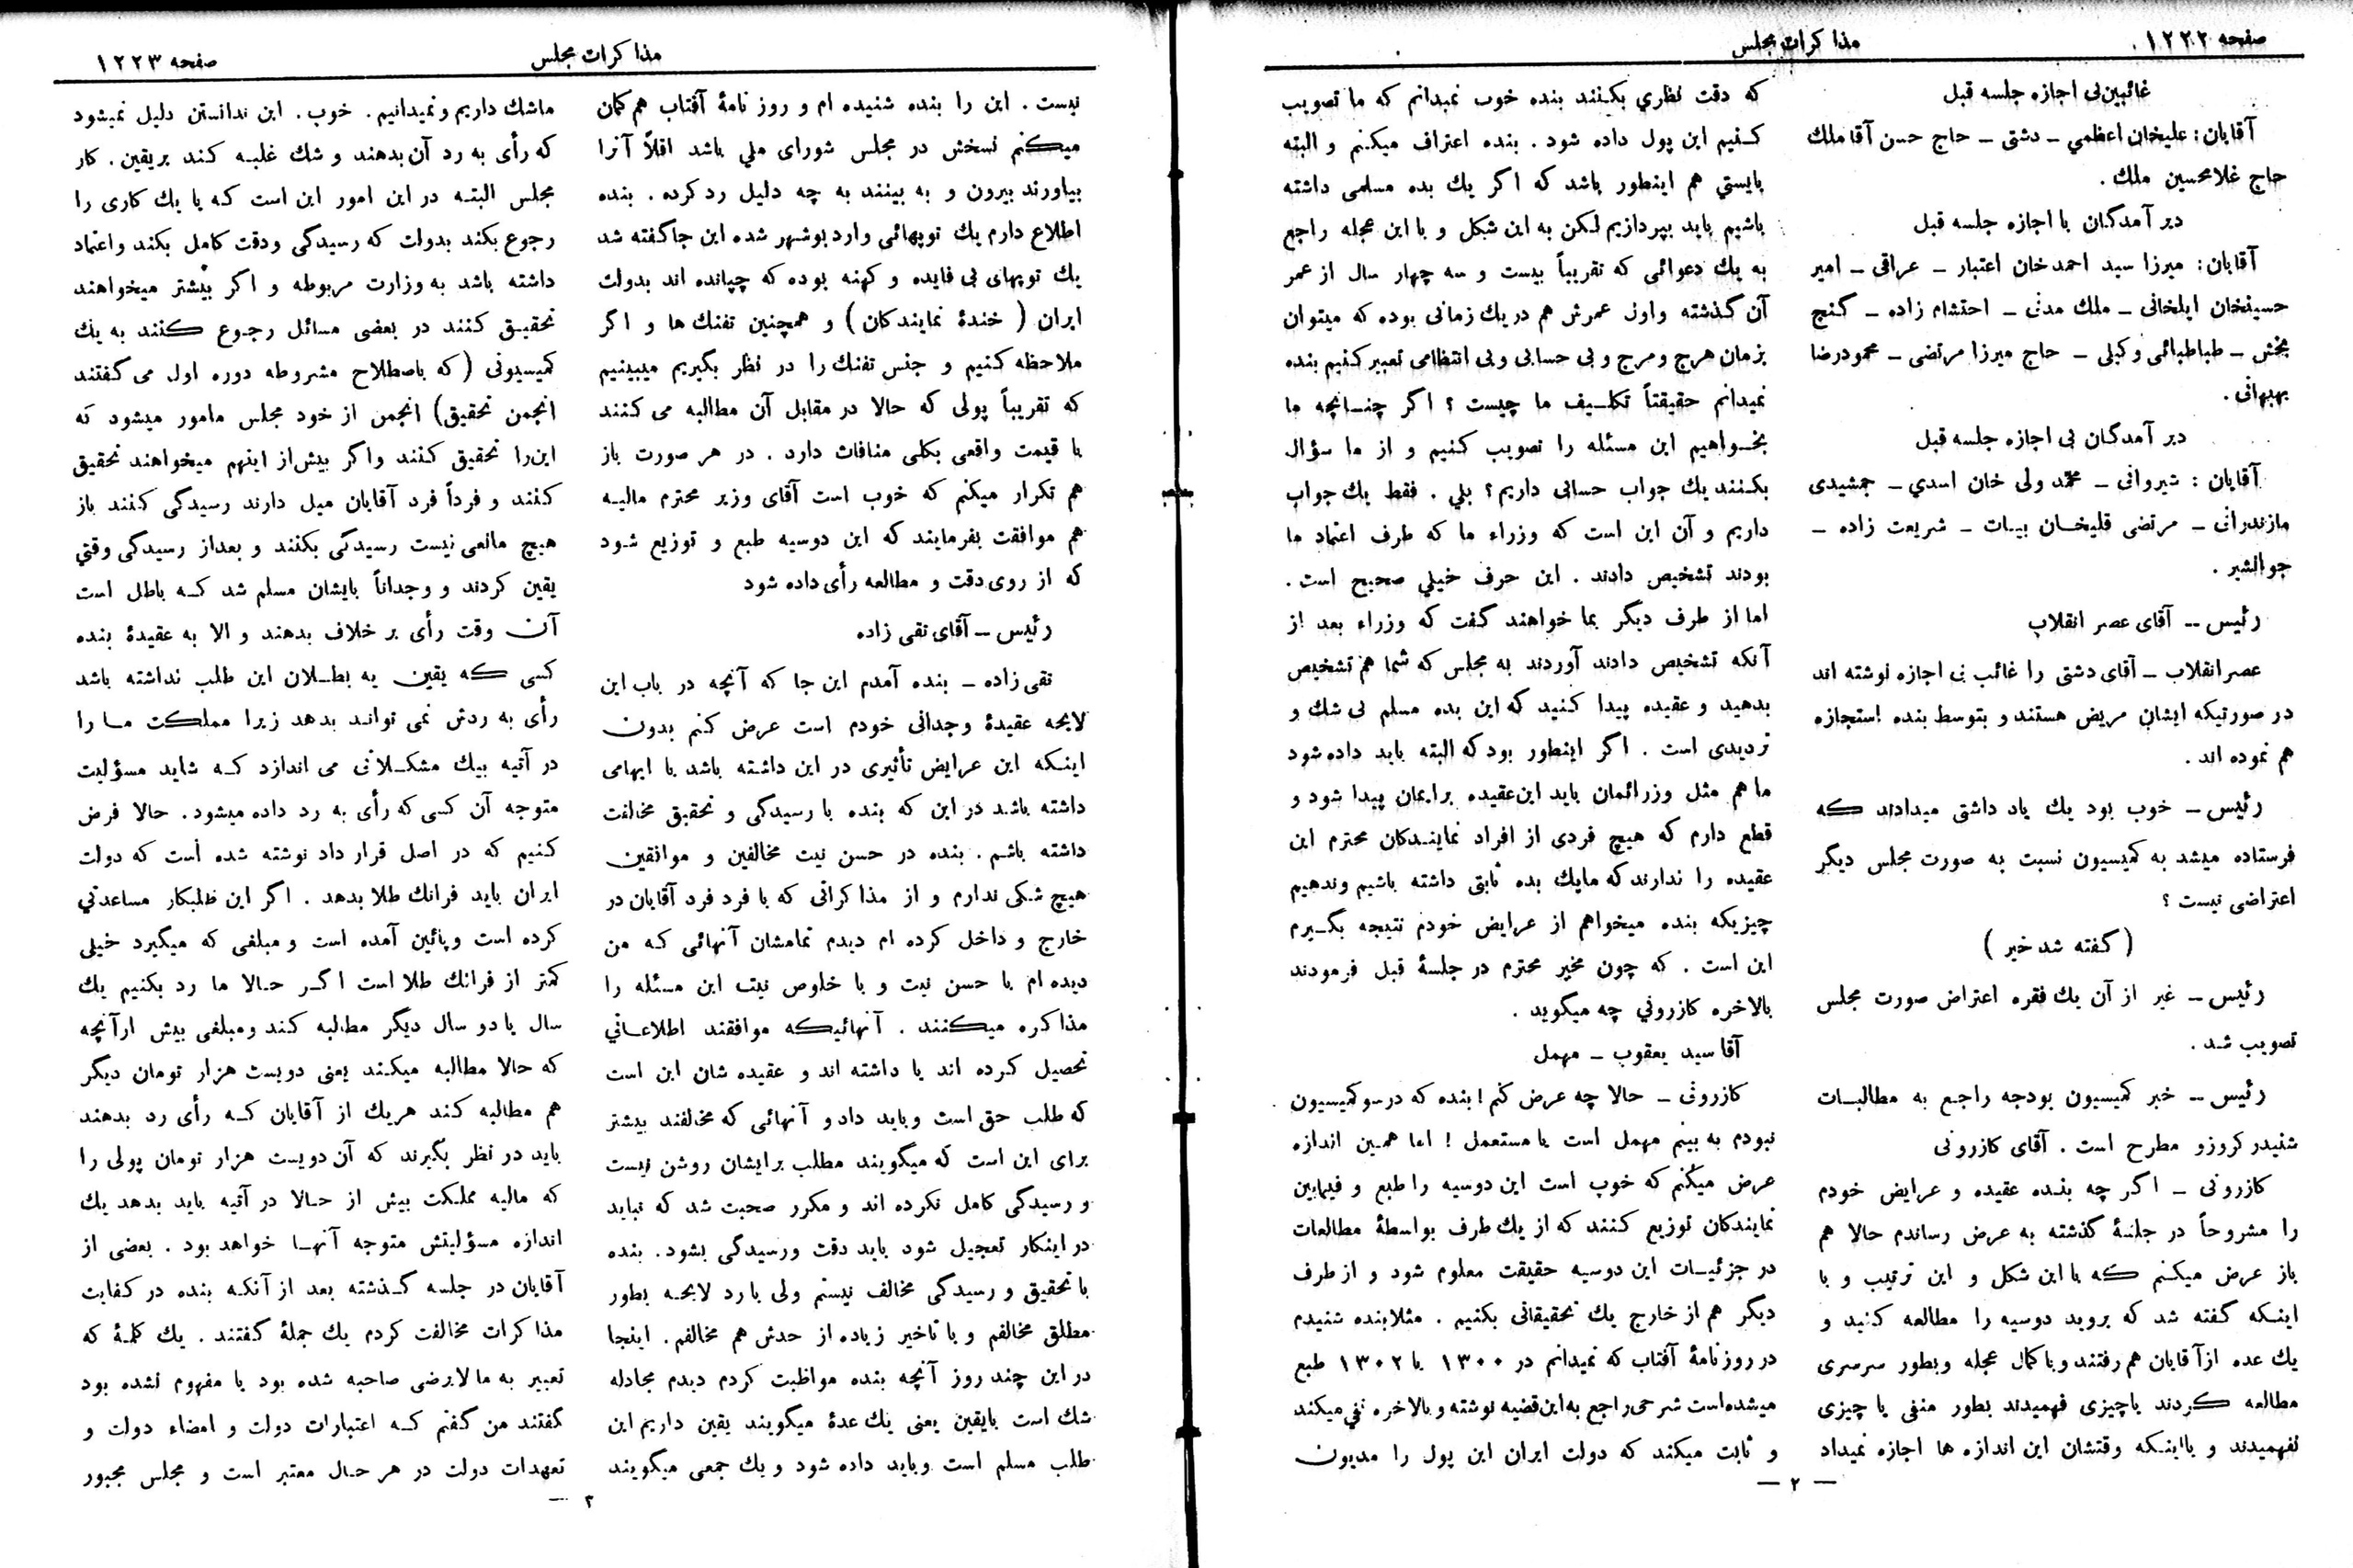 صفحه ۱۲۲۲
مذاکرات مجلس
غائبین بی اجازه جلسه قبل
آقایان : علیخان اعظمی ـ دشتی ـ حاج حسن آقا ملک
حاج غلامحسین ملک .
دیر آمدگان با اجازه جلسه قبل
آقایان : میرزا سید احمد خان اعتبار ـ عراقی ـ امیر
حسینخان ایلخانی ـ ملک مدنی ـ احتشام زاده ـ گنج
بخش ـ طباطبائی وکیلی ـ حاج میرزا مرتضی ـ محمود رضا
بهبهانی .
دیر آمدگان بی اجازه جلسه قبل
آقایان : شیروانی ـ محمد ولی خان اسدی ـ جمشیدی
مازندرانی ـ مرتضی قلیخان بیات ـ شریعت زاده ـ
جوالشیر .
رئیس ــ آقای عصر انقلاب
عصر انقلاب ـ آقای دشتی را غائب بی اجازه نوشته اند
در صورتیکه ایشان مریض هستند و بتوسط بنده استجازه
هم نموده اند .
رئیس ـ خوب بود یك یاد داشتی میدادند که
فرستاده میشد به کمیسیون نسبت به صورت مجلس دیگر
اعتراضی نیست ؟
( گفته شد خیر )
رئیس ـ غیر از آن یك فقره اعتراض صورت مجلس
تصویب شد .
رئیس ــ خبر کمیسیون بودجه راجع به مطالبات
شنیدر کروزو مطرح است . آقای کازرونی
کازرونی ـ اگر چه بنده عقیده و عرایض خودم
را مشروحاً در جلسهٔ گذشته به عرض رساندم حالا هم
باز عرض میکنم که با این شکل و این ترتیب و با
اینکه گفته شد که بروید دوسیه را مطالعه کنید و
یك عده از آقایان هم رفتند و با کمال عجله و بطور سرسری
مطالعه کردند یا چیزی فهمیدند بطور منفی یا چیزی
نفهمیدند و با اینکه وقتشان این اندازه ها اجازه نمیداد
که دقت نظری بکنند بنده خوب نمیدانم که ما تصویب
کنیم این پول داده شود . بنده اعتراف میکنم و البته
بایستی هم اینطور باشد که اگر یك بده مسلمی داشته
باشیم باید بپردازیم لکن به این شکل و با این عجله راجع
به یك دعوائی که تقریباً بیست و سه چهار سال از عمر
آن گذشته و اول عمرش هم در یك زمانی بوده که میتوان
بزمان هرج و مرج و بی حسابی و بی انتظامی تعبیر کنیم بنده
نمیدانم حقیقتاً تکلیف ما چیست ؟ اگر چنانچه ما
بخواهیم این مسئله را تصویب کنیم و از ما سؤال
بکنند یك جواب حسابی داریم ؟ بلی . فقط یك جواب
داریم و آن این است که وزراء ما که طرف اعتماد ما
بودند تشخیص دادند . این حرف خیلی صحیح است .
اما از طرف دیگر بما خواهند گفت که وزراء بعد از
آنکه تشخیص دادند آوردند به مجلس که شما هم تشخیص
بدهید و عقیده پیدا کنید که این بده مسلم بی شك و
تردیدی است . اگر اینطور بود که البته باید داده شود
ما هم مثل وزرائمان باید این عقیده برایمان پیدا شود و
قطع دارم که هیچ فردی از افراد نمایندگان محترم این
عقیده را ندارند که ما یك بده ثابتی داشته باشیم و ندهیم
چیزیکه بنده میخواهم از عرایض خودم نتیجه بگیرم
این است . که چون مخبر محترم در جلسهٔ قبل فرمودند
بالاخره کازرونی چه میگوید .
آقا سید یعقوب ـ مهمل
کازرونی ـ حالا چه عرض کنم ! بنده که در سوکمیسیون
نبودم به بینم مهمل است یا مستعمل ! اما همین اندازه
عرض میکنم که خوب است این دوسیه را طبع و فیمابین
نمایندگان توزیع کنند که از یك طرف بواسطهٔ مطالعات
در جزئیات این دوسیه حقیقت معلوم شود و از طرف
دیگر هم از خارج یك تحقیقاتی بکنیم . مثلا بنده شنیدم
در روزنامهٔ آفتاب که نمیدانم در ۱۳۰۰ یا ۱۳۰۲ طبع
میشده است شرحی راجع به این قضیه نوشته و بالاخره نفی میکند
و ثابت میکند که دولت ایران این پول را مدیون
ـ ۲ ـ
مذاکرات مجلس
صفحه ۱۲۲۳
نیست . این را بنده شنیده ام و روز نامهٔ آفتاب هم گمان
میکنم نسخش در مجلس شورای ملی باشد اقلاً آنرا
بیاورند بیرون و به بینند به چه دلیل رد کرده . بنده
اطلاع دارم یك توپهائی وارد بوشهر شده این جا گفته شد
یك توپهای بی فایده و کهنه بوده که چپانده اند بدولت
ایران ( خندهٔ نمایندگان ) و همچنین تفنك ها و اگر
ملاحظه کنیم و جنس تفنك را در نظر بگیریم میبینیم
که تقریباً پولی که حالا در مقابل آن مطالبه می کنند
با قیمت واقعی بکلی منافات دارد . در هر صورت باز
هم تکرار میکنم که خوب است آقای وزیر محترم مالیه
هم موافقت بفرمایند که این دوسیه طبع و توزیع شود
که از روی دقت و مطالعه رأی داده شود
رئیس ـ آقای تقی زاده
تقی زاده ـ بنده آمدم این جا که آنچه در باب این
لایحه عقیدهٔ وجدانی خودم است عرض کنم بدون
اینکه این عرایض تأثیری در این داشته باشد یا ابهامی
داشته باشد در این که بنده با رسیدگی و تحقیق مخالفت
داشته باشم . بنده در حسن نیت مخالفین و موافقین
هیچ شکی ندارم و از مذاکراتی که با فرد فرد آقایان در
خارج و داخل کرده ام دیدم تمامشان آنهائی که من
دیده ام با حسن نیت و با خلوص نیت این مسئله را
مذاکره میکنند . آنهائیکه موافقند اطلاعاتی
تحصیل کرده اند یا داشته اند و عقیده شان این است
که طلب حق است و باید داد و آنهائی که مخالفند بیشتر
برای این است که میگویند مطلب برایشان روشن نیست
و رسیدگی کامل نکرده اند و مکرر صحبت شد که نباید
در اینکار تعجیل شود باید دقت و رسیدگی بشود . بنده
با تحقیق و رسیدگی مخالف نیستم ولی با رد لایحه بطور
مطلق مخالفم و با تاخیر زیاده از حدش هم مخالفم . اینجا
در این چند روز آنچه بنده مواظبت کردم دیدم مجادله
شك است بایقین یعنی یك عدهٔ میگویند یقین داریم این
طلب مسلم است و باید داده شود و یك جمعی میگویند
ماشك داریم و نمیدانیم . خوب . این ندانستن دلیل نمیشود
که رأی به رد آن بدهند و شك غلبه کند بر یقین . کار
مجلس البته در این امور این است که یا یك کاری را
رجوع بکند بدولت که رسیدگی و دقت کامل بکند و اعتماد
داشته باشد به وزارت مربوطه و اگر بیشتر میخواهند
تحقیق کنند در بعضی مسائل رجوع کنند به یك
کمیسیونی (که باصطلاح مشروطه دوره اول می گفتند
انجمن تحقیق) انجمن از خود مجلس مامور میشود که
این را تحقیق کنند و اگر بیش از اینهم میخواهند تحقیق
کنند و فرداً فرد آقایان میل دارند رسیدگی کنند باز
هیچ مانعی نیست رسیدگی بکنند و بعد از رسیدگی وقتی
یقین کردند و وجداناً بایشان مسلم شد که باطل است
آن وقت رأی بر خلاف بدهند و الا به عقیدهٔ بنده
کسی که یقین به بطلان این طلب نداشته باشد
رأی به ردش نمی تواند بدهد زیرا مملکت ما را
در آتیه بیك مشکلاتی می اندازد که شاید مسؤلیت
متوجه آن کسی که رأی به رد داده میشود . حالا فرض
کنیم که در اصل قرار داد نوشته شده است که دولت
ایران باید فرانك طلا بدهد . اگر این طلبکار مساعدتی
کرده است و پائین آمده است و مبلغی که میگیرد خیلی
کمتر از فرانك طلا است اگر حالا ما رد بکنیم یك
سال یا دو سال دیگر مطالبه کند و مبلغی بیش از آنچه
که حالا مطالبه میکند یعنی دویست هزار تومان دیگر
هم مطالبه کند هر یك از آقایان که رأی رد بدهند
باید در نظر بگیرند که آن دویست هزار تومان پولی را
که مالیه مملکت بیش از حالا در آتیه باید بدهد یك
اندازه مسؤلیتش متوجه آنها خواهد بود . بعضی از
آقایان در جلسه گذشته بعد از آنکه بنده در کفایت
مذاکرات مخالفت کردم یك جملهٔ گفتند . یك کلمهٔ که
تعبیر به ما لایرضی صاحبه شده بود یا مفهوم نشده بود
گفتند من گفتم که اعتبارات دولت و امضاء دولت و
تعهدات دولت در هر حال معتبر است و مجلس مجبور
۳ ـ